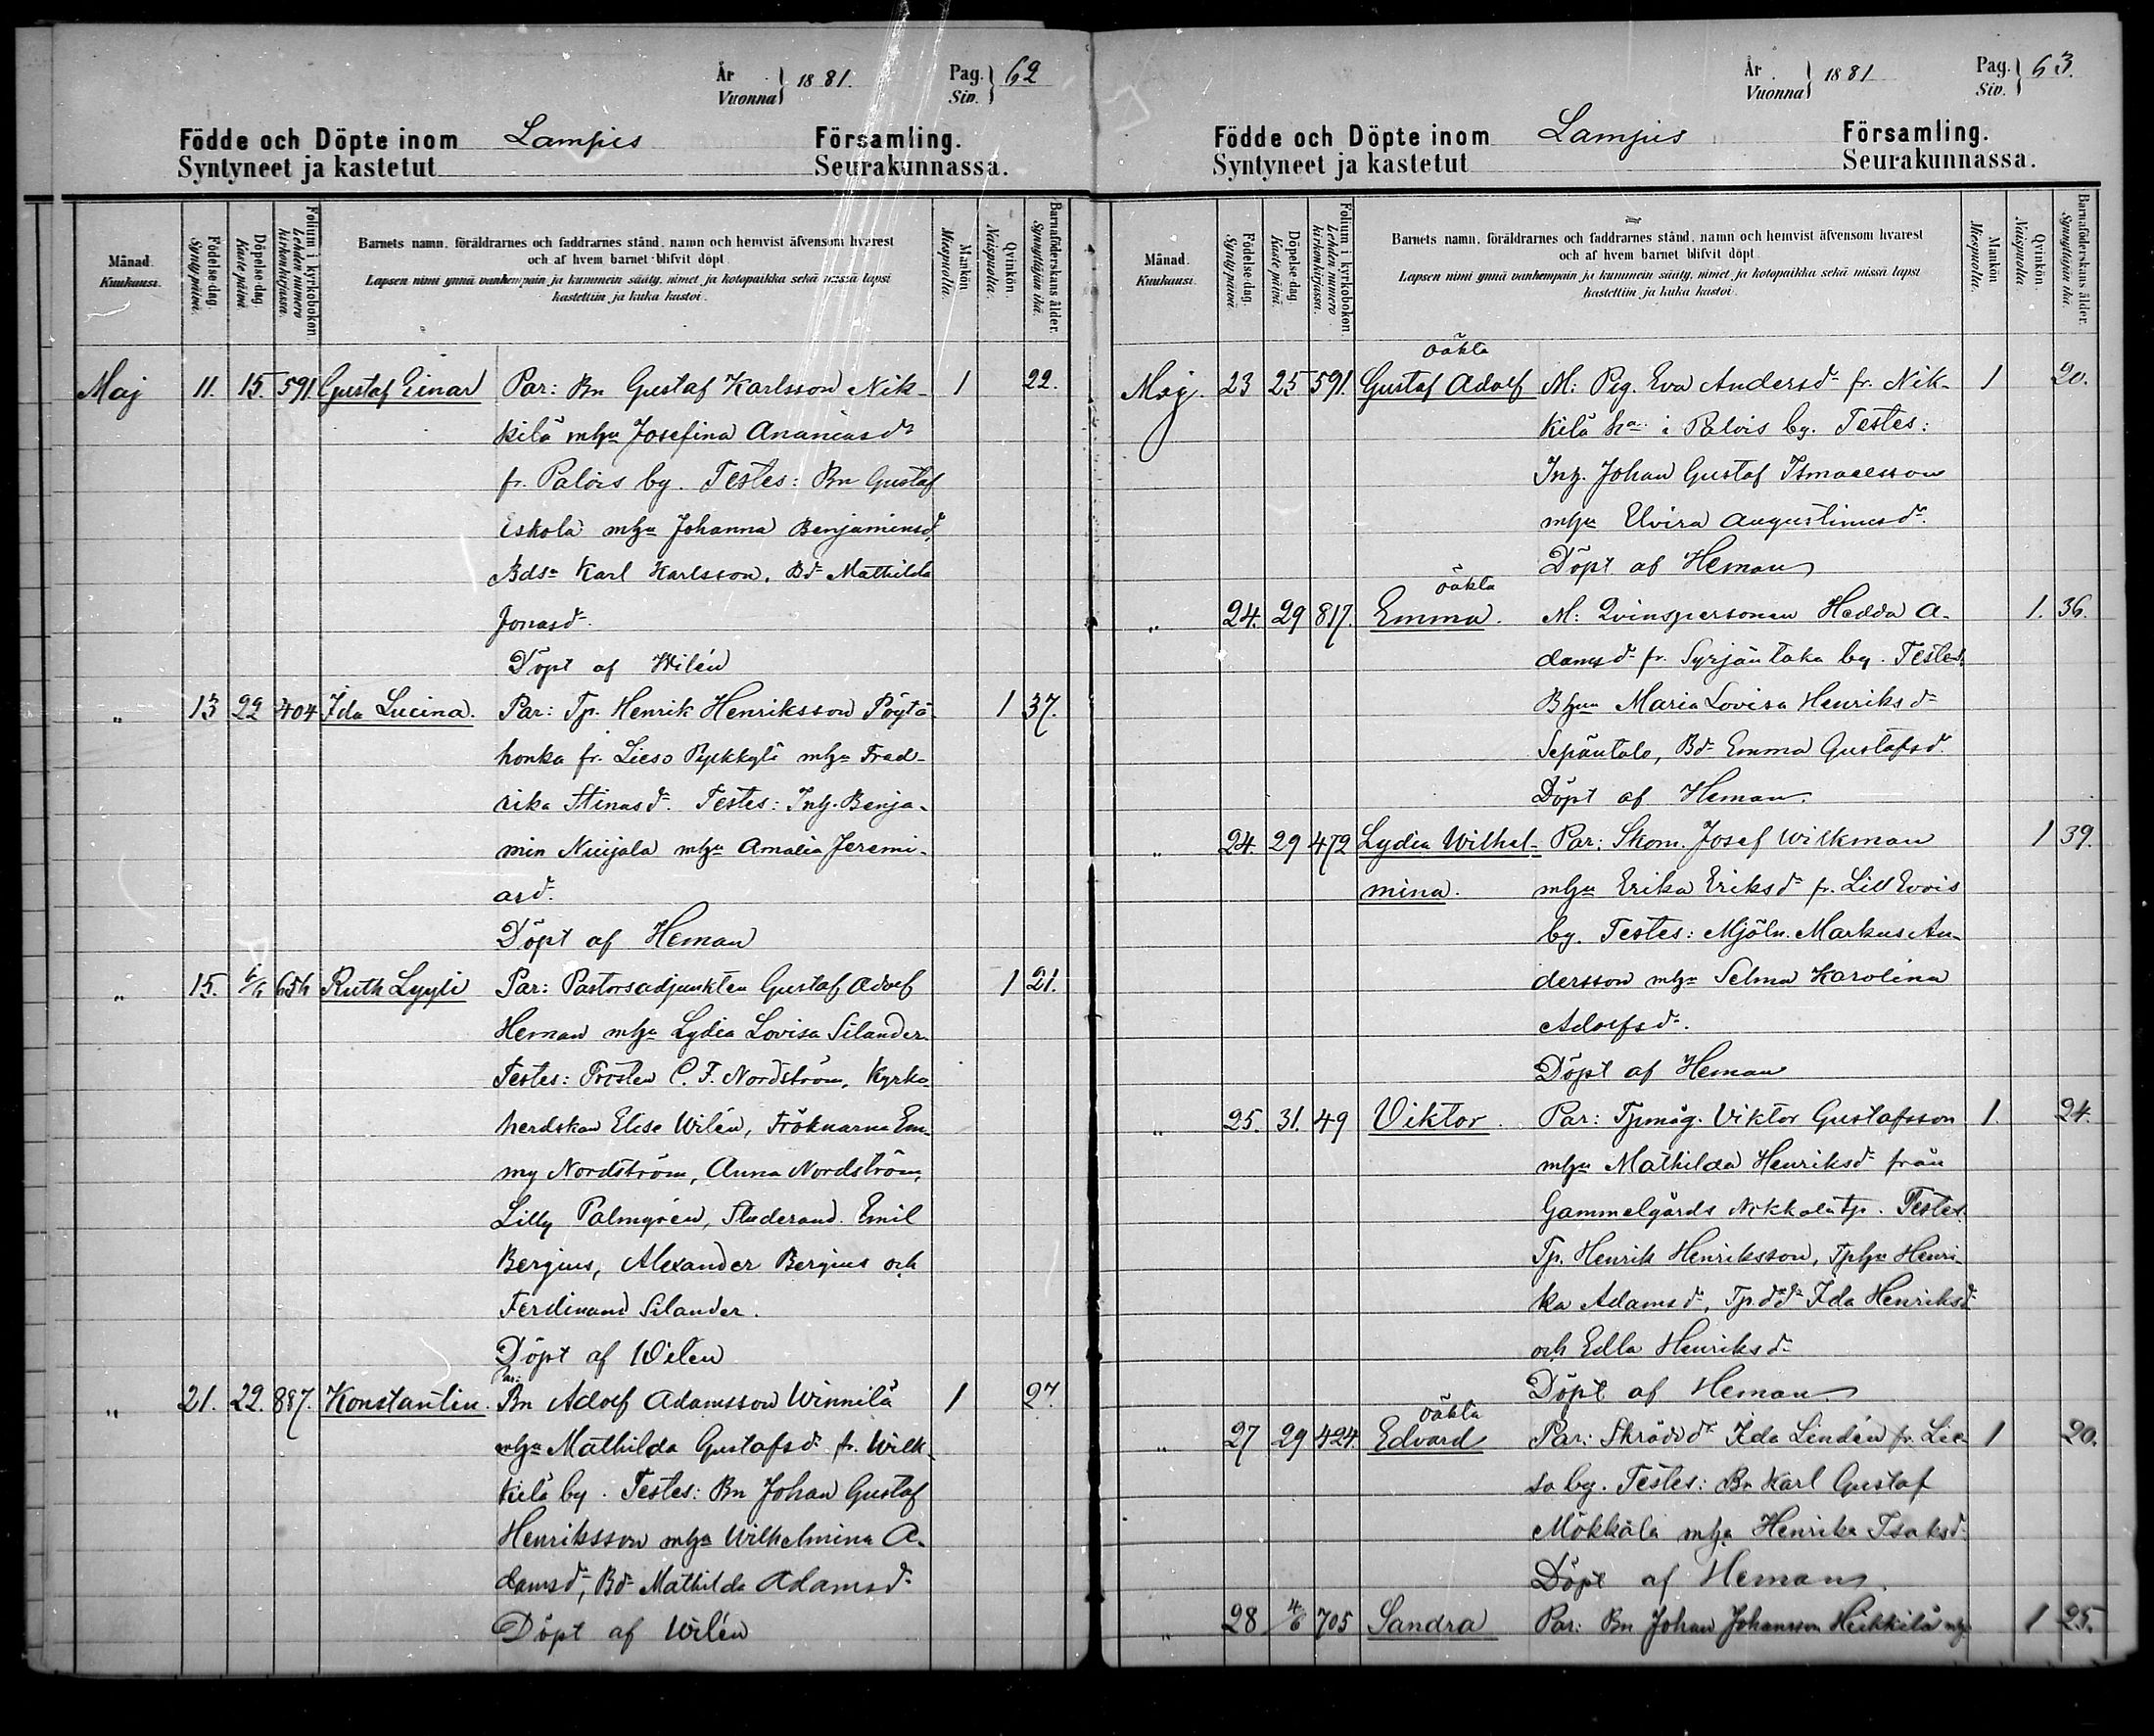 År
Vuonna 1881.
Pag.
Siv. 62
Födde och Döpte inom Lampis Församling.
Syntyneet ja kastetut Seurakunnassa.
Månad.
Kuukausi.
Födelse-dag.
Syntypäivä.
Döpelse-dag.
Kastepäivä.
Folium i kyrkobokon.
Lehden numero
kirkonkirjassa.
Barnets namn, föräldrarnes och faddrarnes stånd, namn och hemvist äfvensom hvarest
och af hvem barnet blifvit döpt.
Lapsen nimi ynnä vanhempain ja kummein sääty, nimet ja kotopaikka sekä missä lapsi
kastettiin ja kuka kastoi.
Mankön.
Miespuolia.
Qvinkön.
Naispuolia.
Barnaföderskans ålder.
Synnyttäjän ikä.
Maj 11. 15. 591. Gustaf Einar Par: Bn Gustaf Karlsson Nik- 1 22.
kilä mhu Josefina Ananiasdr
fr. Palois by. Testes: Bn Gustaf
Eskola mhu Johanna Benjaminsd.
Bdsn Karl Karlsson, Bdr Mathilda
Jonasdr.
Döpt af Wilén
" 13 22 404 Ida Lucina. Par: Tp. Henrik Henriksson Pöytä- 1 37.
honka fr. Lieso Pykkylä mhu Fred-
rika Stinasdr. Testes: Inh. Benja-
min Nuijala mhu Amalia Jeremi-
asdr.
Döpt af Heman
" 15. 6/6 654 Ruth Lyyli Par: Pastorsadjunkten Gustaf Adolf 1 21.
Heman mhu Lydia Lovisa Silander.
Testes: Prosten C. F. Nordström, Kyrko
herdskan Elise Wilén, Fröknarna Em-
my Nordström, Anna Nordström,
Lilly Palmgrén, Studerand. Emil
Bergius, Alexander Bergius och
Ferdinand Silander.
Döpt af Wilén
Par:
" 21. 22. 887. Konstantin. Bn Adolf Adamsson Winnilä 1 27.
mhu Mathilda Gustafsdr fr. Wilk-
kilä by. Testes: Bn Johan Gustaf
Henriksson mhu Wilhelmina A-
damsdr, Bdr Mathilda Adamsdr
Döpt af Wilén
År
Vuonna 1881
Pag.
Siv. 63.
Födde och Döpte inom Lampis Församling.
Syntyneet ja kastetut Seurakunnassa.
Månad.
Kuukausi.
Födelse-dag.
Syntypäivä.
Döpelse-dag.
Kastepäivä.
Folium i kyrkobokon.
Lehden numero
kirkonkirjassa.
Barnets namn, föräldrarnes och faddrarnes stånd, namn och hemvist äfvensom hvarest
och af hvem barnet blifvit döpt.
Lapsen nimi ynnä vanhempain ja kummein sääty, nimet ja kotopaikka sekä missä lapsi
kastettiin ja kuka kastoi.
Mankön.
Miespuolia.
Qvinkön.
Naispuolia.
Barnaföderskans ålder.
Synnyttäjän ikä.
oäkta
Maj. 23 25 591. Gustaf Adolf M: Pig. Eva Andersdr fr. Nik- 1 20.
kilä hn i Palois by. Testes:
Inh. Johan Gustaf Ismaelsson
mhu Elvira Augustinusdr.
Döpt af Heman
oäkta
" 24. 29 817. Emma. M: Qvinspersonen Hedda A- 1. 36.
damsdr fr. Syrjäntaka by. Testes:
Bhun Maria Lovisa Henriksdr
Sepäntalo, Bdr Emma Gustafsdr.
Döpt af Heman.
" 24. 29 472 Lydia Wilhel- Par: Skom. Josef Wikman 1 39.
mina. mhu Erika Eriksdr fr. Lill Evois
by. Testes: Mjöln. Markus An-
dersson mhu Selma Karolina
Adolfsdr.
Döpt af Heman
" 25. 31. 49 Viktor. Par: Tpmåg. Viktor Gustafsson 1. 24.
mhu Mathilda Henriksdr från
Gammelgårds Nikkola tp. Testes:
Tp. Henrik Henriksson, Tphu Henri-
ka Adamsdr, Tp.ddr Ida Henriksdr
och Edla Henriksdr
Döpt af Heman
oäkta
" 27 29 424 Edvard Par: Skräddr Ida Lindén fr. Lie- 1 20.
so by. Testes: Bn Karl Gustaf
Mökkälä mhu Henrika Isaksdr.
Döpt af Heman.
" 28 4/6 705 Sandra Par: Bn Johan Johansson Heikkilä mh 1 25.